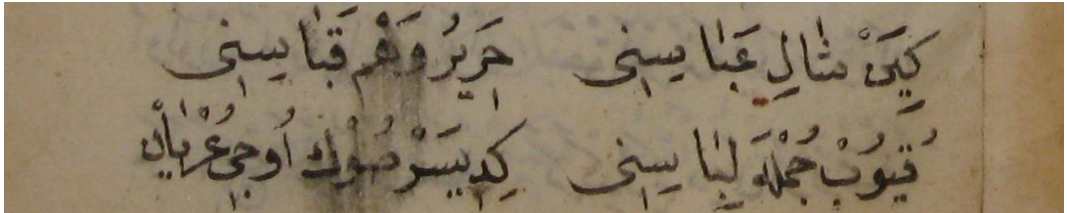 كِيَنْ شالِ عَبٰا يسِنى حَرِيرُ وَهَمْ قَبٰا يسِنى
قُيُوبْ جُمْلَه لِبٰا يسِنى كِدِيسَرْ صُوْڭ اُوجِى عُرْيٰانْ